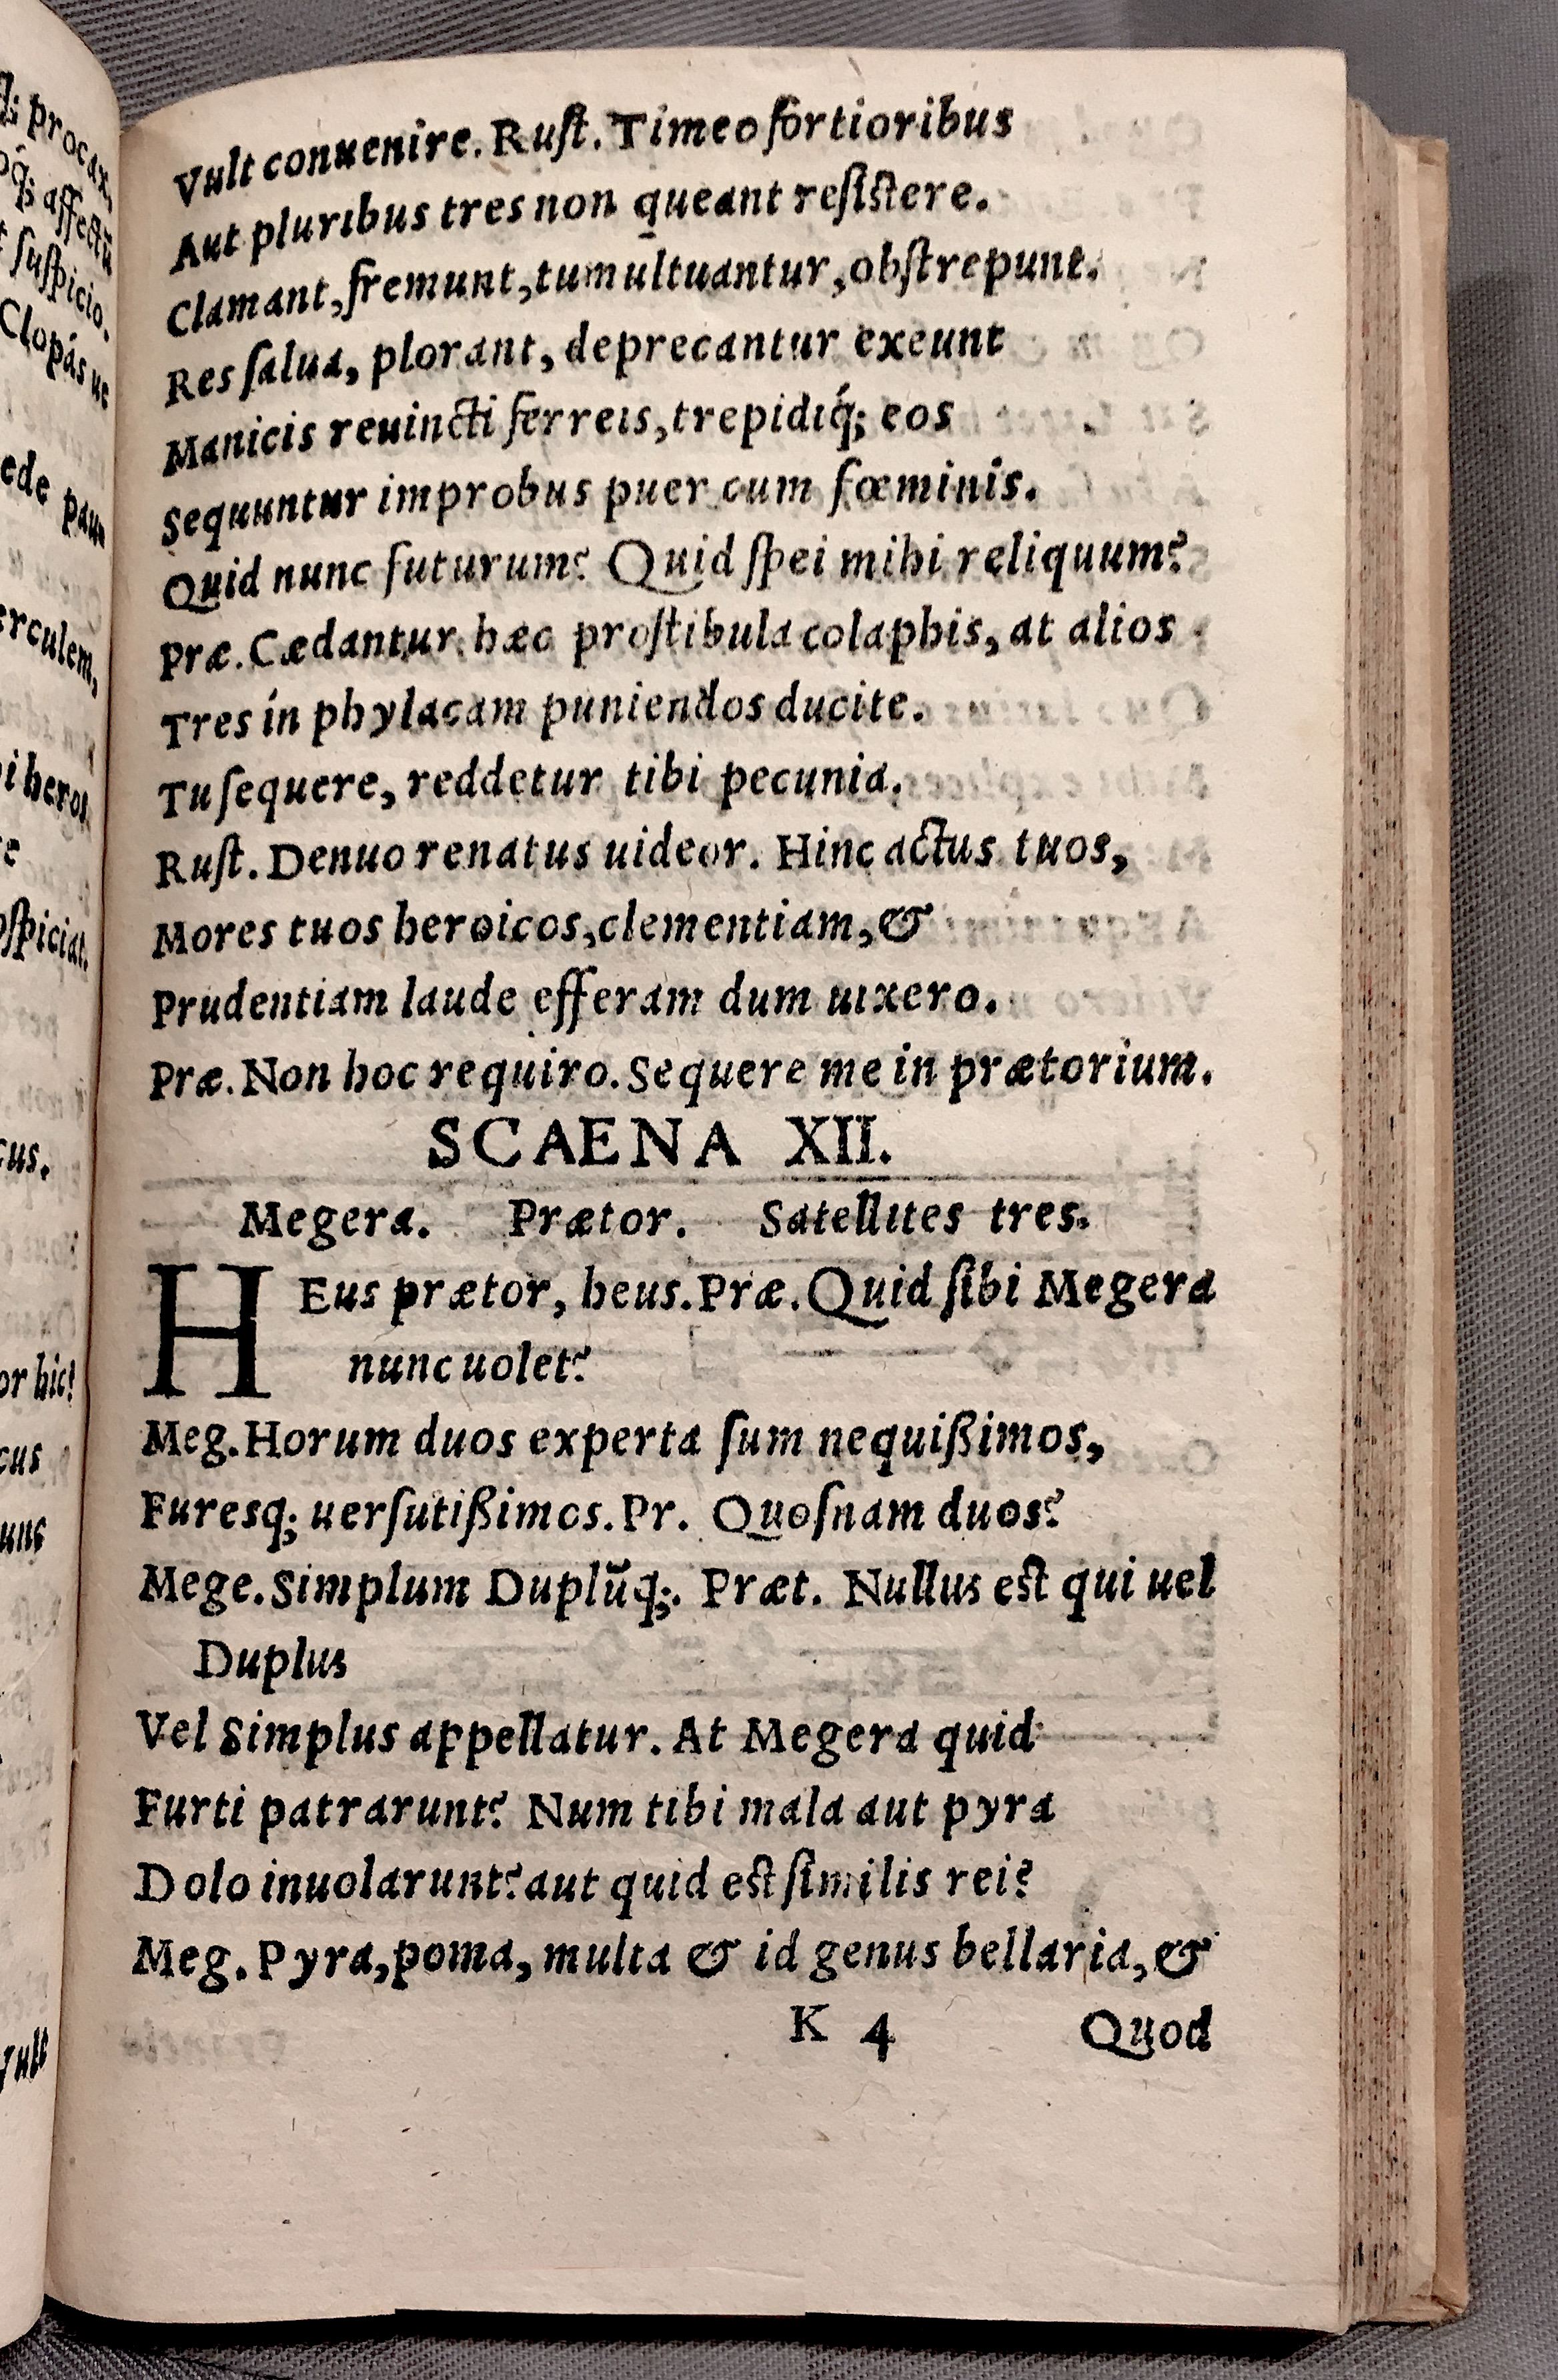 Vult conuenire. Ruſt. Timeo fortioribus
Aut pluribus tres non queant reſiſtere.
Clamant, fremunt, tumultuantur, obſtrepunt.
Res ſalua, plorant, deprecantur exeunt
Manicis reuincti ferreis, trepidiq́; eos
Sequuntur improbus puer cum fœminis.
Quid nunc futurum? Quid ſpei mihi reliquum?
Præ. Cædantur hæc proſtibula colaphis, at alios
Tres in phylacam puniendos ducite.
Tu ſequere, reddetur tibi pecunia.
Ruſt. Denuo renatus uideor. Hinc actus tuos,
Mores tuos heroicos, clementiam, &
Prudentiam laude efferam dum uixero.
Præ. Non hoc requiro. Sequere me in prætorium.
SCAENA XII.
Megera. Prætor. Satellites tres.
HEus prætor, heus. Præ. Quid ſibi Megera
nunc uolet?
Meg. Horum duos experta ſum nequißimos,
Furesq; uerſutißimos. Pr. Quoſnam duos?
Mege. Simplum Duplũq;. Præt. Nullus eſt qui uel
Duplus
Vel Simplus appellatur. At Megera quid
Furti patrarunt? Num tibi mala aut pyra
Dolo inuolarunt? aut quid eſt ſimilis rei?
Meg. Pyra, poma, multa & id genus bellaria, &
K 4 Quod
procax,
affectũ
ſuſpicio.
Clopás ue
erculem,
cus.
or hic!
Vult